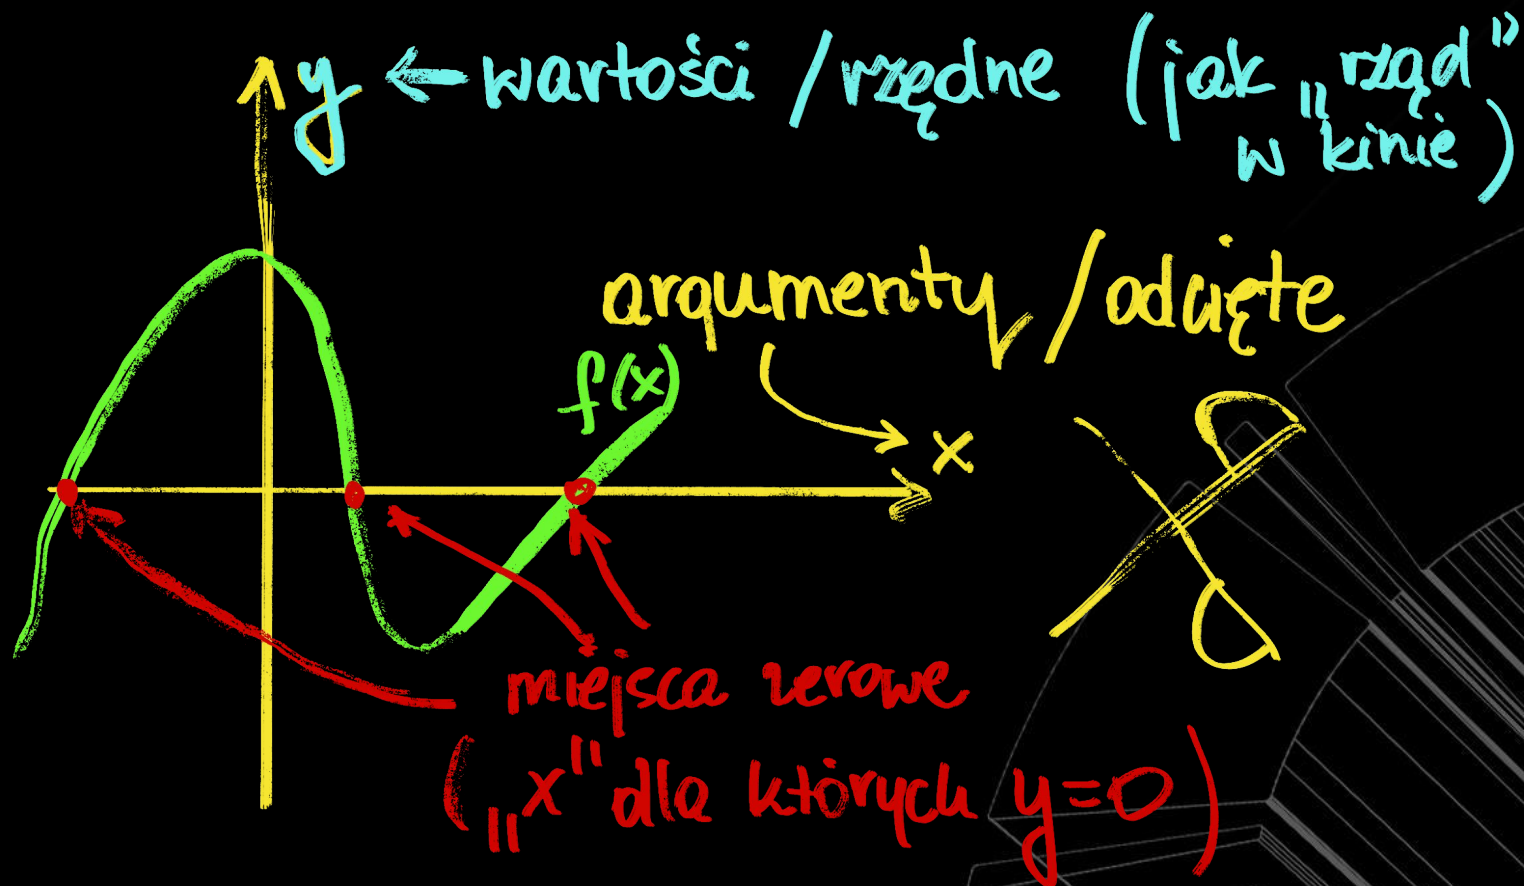 y ← wartości / rzędne (jak „rząd”
w kinie)
argumenty / odcięte
f(x)
x
miejsca zerowe
(„x” dla których y=0)